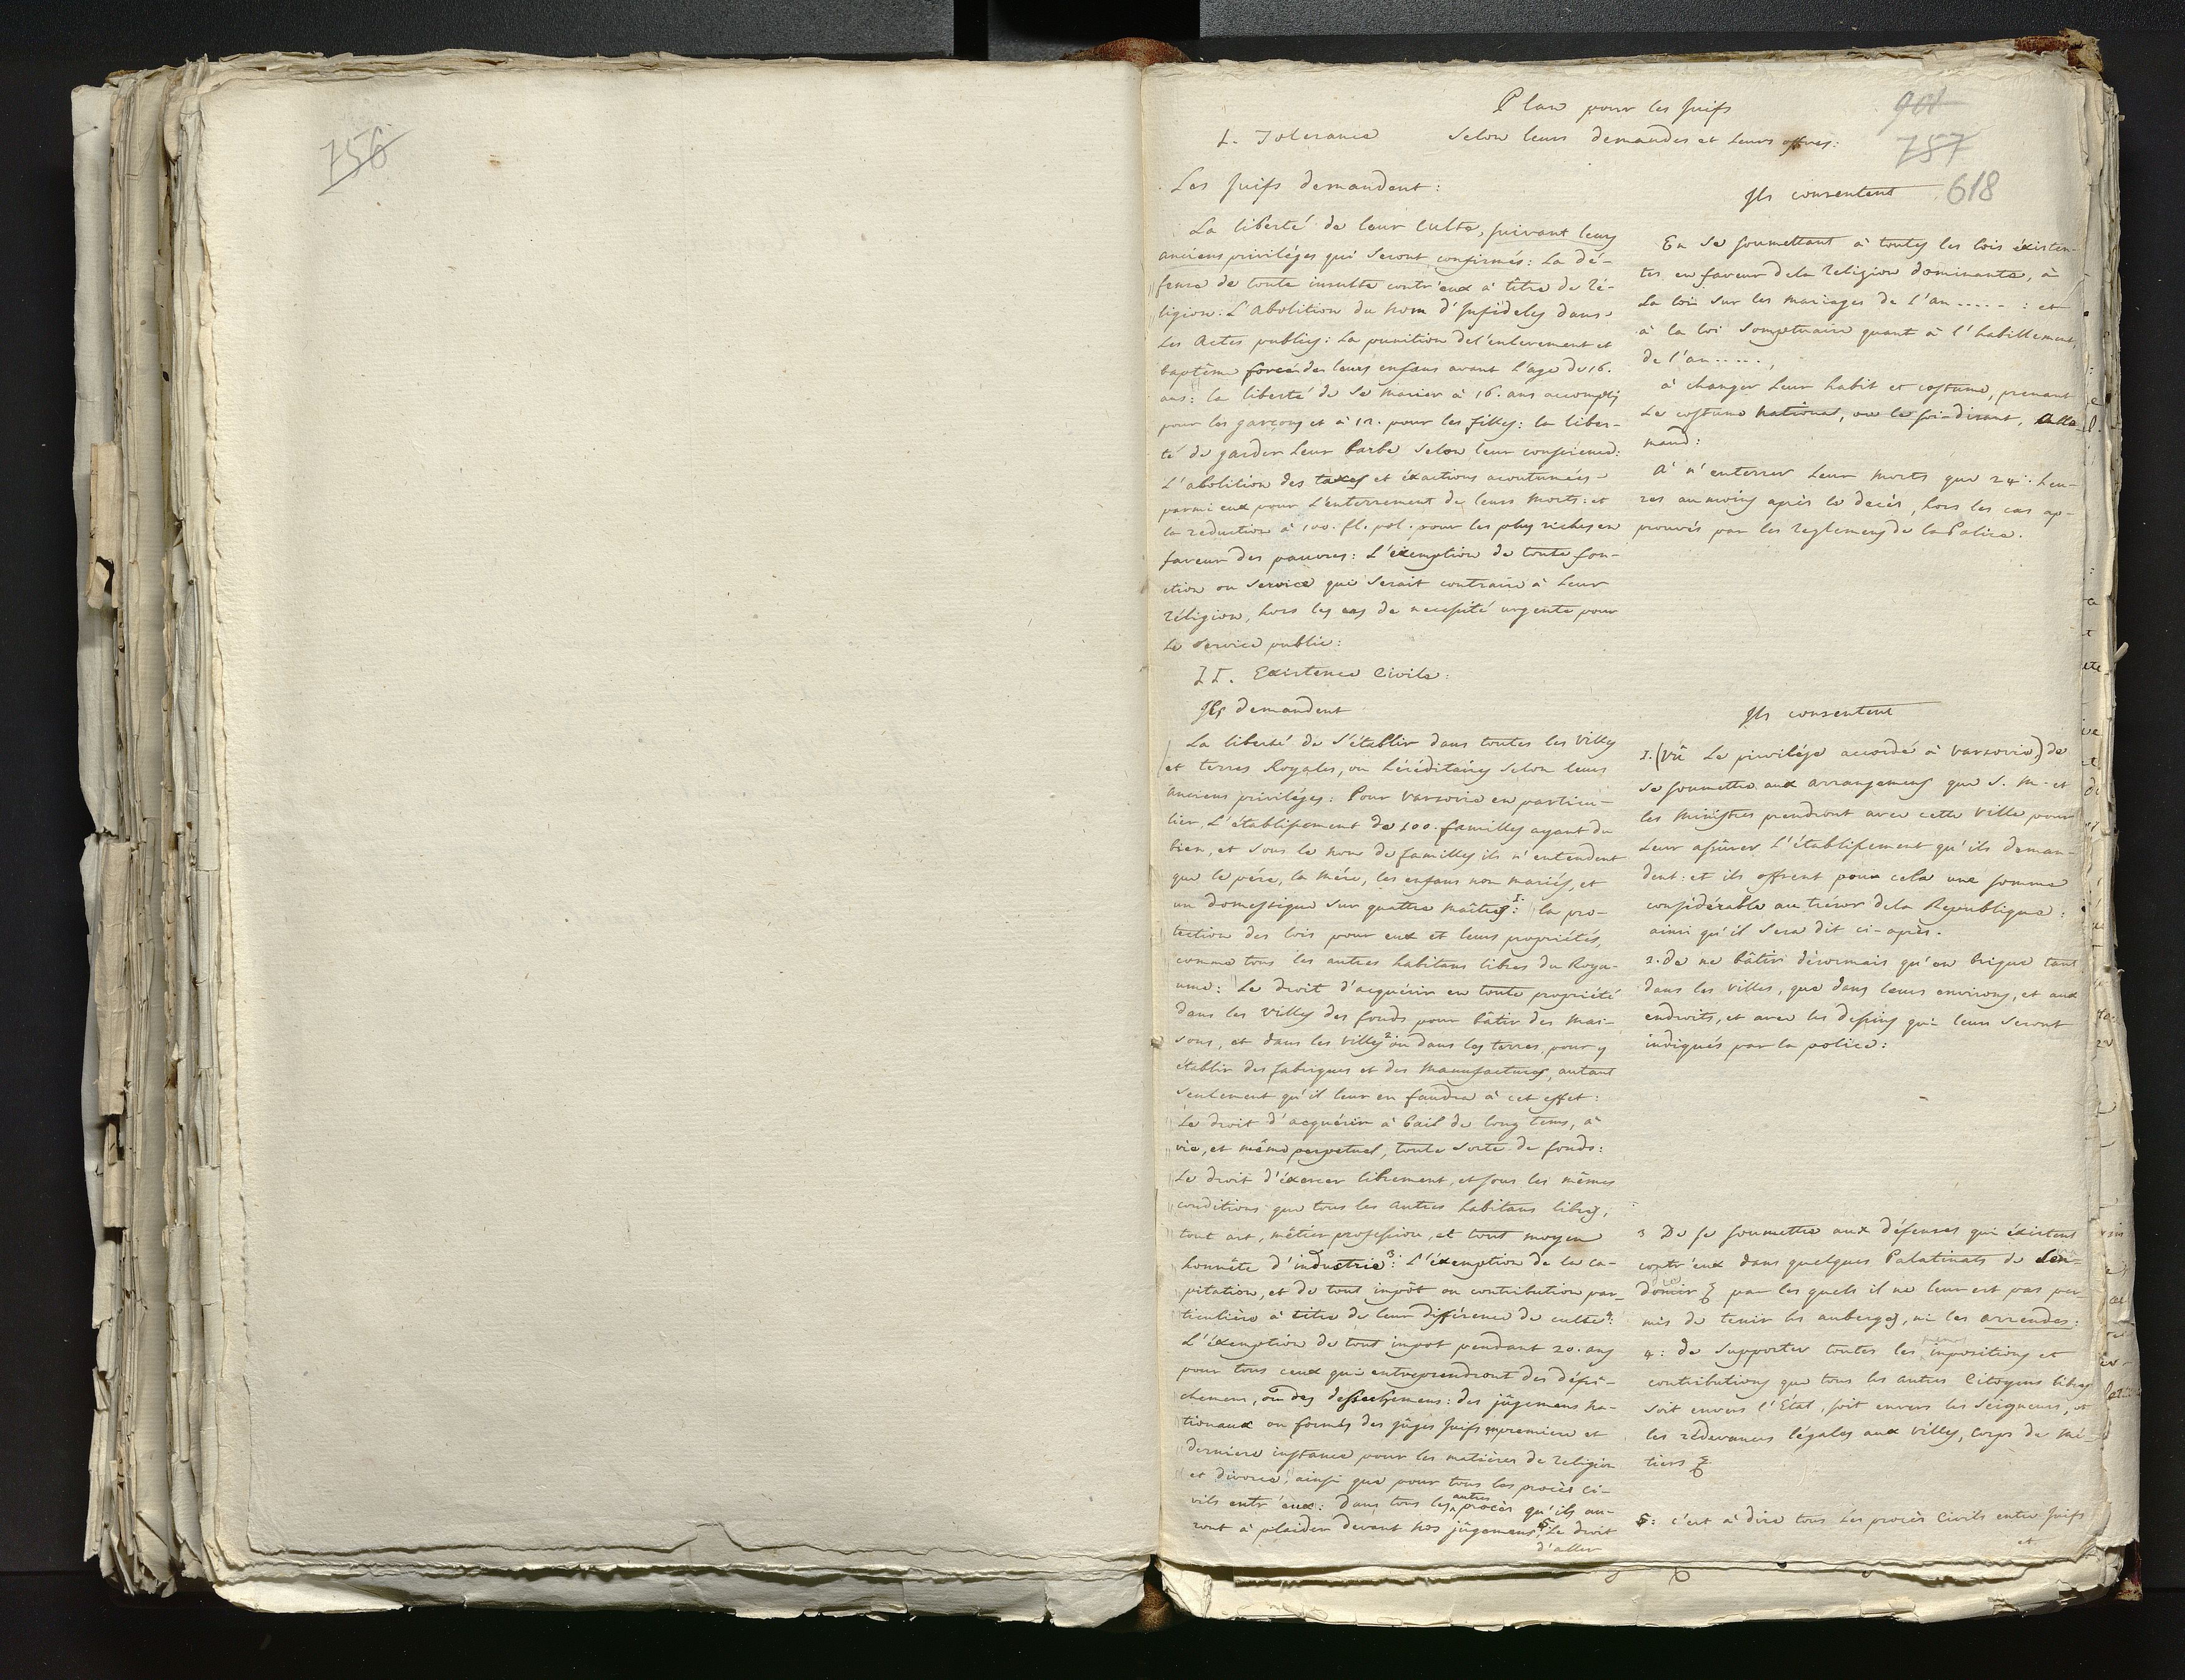 756
Plan pour les Juifs
961
I. Tolerance Selon leurs demandes et leurs offres:
787
618
Les Juifs demandent:
La liberté de leur culte, suivant leurs
anciens priviléges qui seront confirmés: La dé-
fense de toute insulte contr'eux à titre de ré-
ligion. L'abolition du nom d'Infideles dans
les Actes publics: La punition de l'enlevement et
baptême forcé des leurs enfans avant l'age de 16.
ans: la liberté de se marier à 16. ans accomplis
pour les garçons et à 12. pour les filles: la liber-
té de garder leur barbe selon leur conscience:
L'abolition des taxes et éxactions acoutumées
parmi eux pour l'enterrement de leurs morts: et
la reduction à 100. fl. pol. pour les plus riches en
faveur des pauvres: L'éxemption de toute fon-
ction ou service qui serait contraire à leur
réligion, hors les cas de necessité urgente pour
le service public:
Ils consentent
En se soumettant à toutes les lois éxisten-
tes en faveur de la religion dominante, à
la loi sur les mariages de l'an ..... : et
à la loi somptuaire quant à l'habillement,
de l'an .....,
à changer leur habit et costume, prenant
le costume national, ou le soi-disant, alle-
mand:
A n'enterrer leur morts que 24. heu-
res au moins après le decès, hors les cas ap-
prouvés par les reglemens de la Police.
II. Existence Civile:
Ils demandent
La liberté de s'établir dans toutes les villes
et terres Royales, ou héréditaires selon leurs
anciens priviléges: Pour varsovie en particu-
lier, L'établissement de 100. familles ayant du
bien, et sous le nom de familles ils n'entendent
que le père, la mère, les enfans non mariés, et
un domestique sur quattre maîtres 1.: la pro-
tection des lois pour eux et leurs propriétés,
comme tous les autres habitans libres du Roya-
ume: Le droit d'acquérir en toute propriété
dans les villes des fonds pour bâtir des mai-
sons, et dans les villes 2. ou dans les terres, pour y
établir des fabriques et des manufactures, autant
seulement qu'il leur en faudra à cet effet:
Le droit d'acquérir à bail de long tems, à
vie, et même perpetuel, toute sorte de fonds:
Le droit d'éxercer librement, et sous les mêmes
conditions que tous les autres habitans libres,
tout art, métier profession, et tout moyen
honnête d'industrie 3: L'éxemption de la ca-
pitation, et de tout impôt ou contribution par-
ticulière à titre de leur différence de culte 4:
L'éxemption de tout impot pendant 20. ans
pour tous ceux qui entreprendront des défri-
chemens, ou des dessechemens: des jûgemens na-
tionaux ou formés des jûges Juifs en premiere et
derniere instance pour les matières de religion
et divorce, ainsi que pour tous les procès ci-
vils entr'eux: dans tous les autres procès qu'ils au-
ront à plaider devant nos jûgemens, 5 Le droit
d'aller
Ils consentent
1. (Vû le privilège accordé à varsovie) de
se soumettre aux arrangemens que S. M. et
les ministres prendront avec cette ville pour
leur assûrer l'établissement qu'ils deman-
dent: et ils offrent pour cela une somme
considérable au trésor de la Republique:
ainsi qu'il sera dit ci-après.
2. de ne bâtir désormais qu'en brique tant
dans les villes, que dans leurs environs, et aux
endroits, et avec les dessins qui leurs seront
indiqués par la police:
3 De se soumettre aux défenses qui éxistent
contr'eux dans quelques Palatinats de Sen-
domir & par les quels il ne leur est pas per-
mis de tenir les auberges, ni les arrendes:
4: de supporter toutes les impositions et
contributions que tous les autres Citoyens libres
soit envers l'Etat, soit envers les Seigneurs, et
les rédevances légales aux villes, Corps de mé-
tiers &
5: c'est à dire tous les procès Civils entre Juifs
et